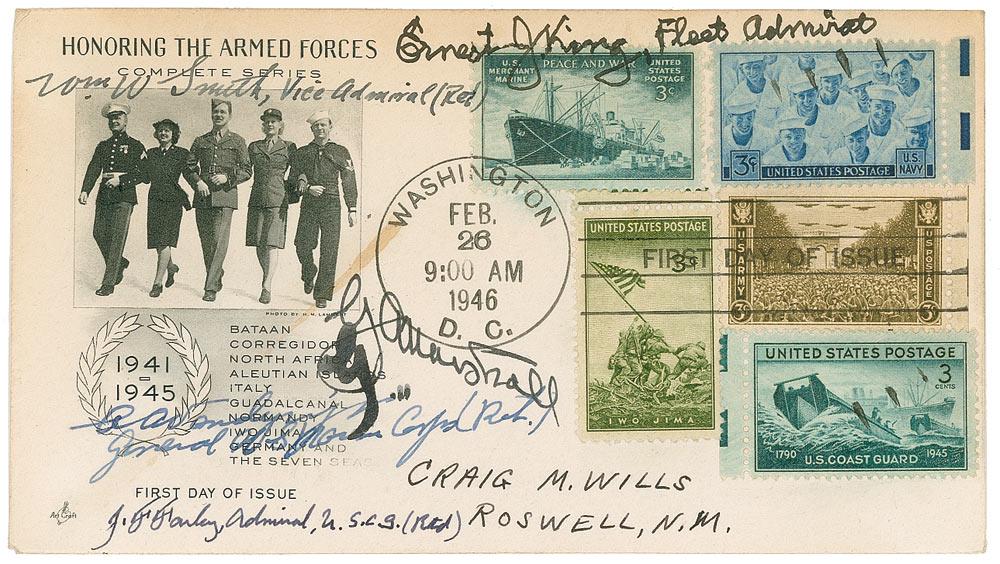 HONORING THE ARMED FORCES
COMPLETE SERIES
Ernest J King, Fleet Admiral
Wm W Smith, Vice Admiral (Ret)
U.S. MERCHANT MARINE
PEACE AND WAR
UNITED STATES POSTAGE
3¢
3¢
UNITED STATES POSTAGE
U.S. NAVY
WASHINGTON
FEB.
26
9:00 AM
1946
D. C.
UNITED STATES POSTAGE
3¢
IWO JIMA
FIRST DAY OF ISSUE
U.S. ARMY
U.S. POSTAGE
3
3
PHOTO BY H. M. LAMBERT
1941
-
1945
BATAAN
CORREGIDOR
NORTH AFRICA
ALEUTIAN ISLANDS
ITALY
GUADALCANAL
NORMANDY
IWO JIMA
GERMANY AND
THE SEVEN SEAS
G C Marshall
General US Marine Corps (Ret.)
UNITED STATES POSTAGE
3
CENTS
1790
U.S. COAST GUARD
1945
CRAIG M. WILLS
ROSWELL, N.M.
FIRST DAY OF ISSUE
Art Craft
J. F. Farley, Admiral, U.S.C.G. (Ret)